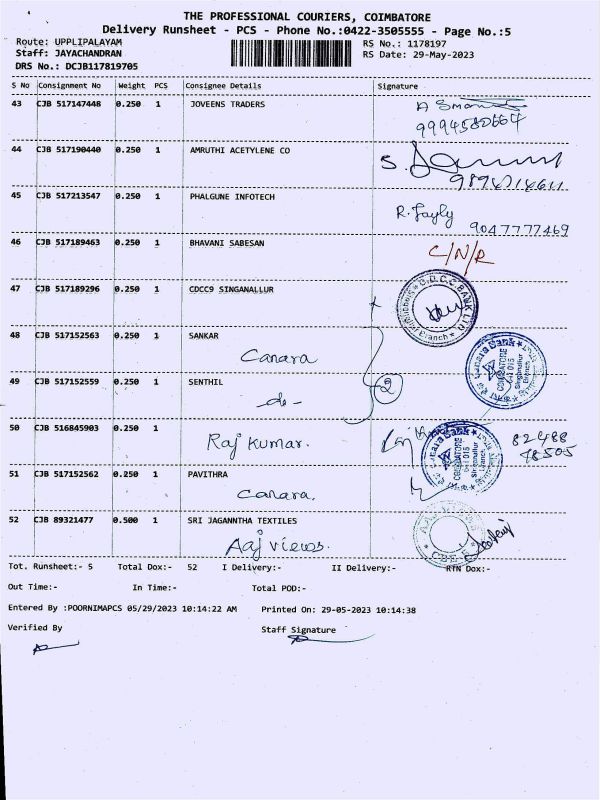 THE PROFESSIONAL COURIERS, COIMBATORE
Delivery Runsheet - PCS - Phone No.:0422-3505555 - Page No.:5
Route: UPPLIPALAYAM RS No.: 1178197
Staff: JAYACHANDRAN RS Date: 29-May-2023
DRS No.: DCJB117819705
S No Consignment No Weight PCS Consignee Details Signature
43 CJB 517147448 0.250 1 JOVEENS TRADERS
9994580664
44 CJB 517190440 0.250 1 AMRUTHI ACETYLENE CO
45 CJB 517213547 0.250 1 PHALGUNE INFOTECH
9047777469
46 CJB 517189463 0.250 1 BHAVANI SABESAN C/N/R
47 CJB 517189296 0.250 1 CDCC9 SINGANALLUR
48 CJB 517152563 0.250 1 SANKAR
Canara
49 CJB 517152559 0.250 1 SENTHIL
-do- 2
50 CJB 516845903 0.250 1
Raj Kumar. 82488
78505
51 CJB 517152562 0.250 1 PAVITHRA
Canara.
52 CJB 89321477 0.500 1 SRI JAGANNTHA TEXTILES
Aaj views.
Tot. Runsheet:- 5 Total Dox:- 52 I Delivery:- II Delivery:- RTN Dox:-
Out Time:- In Time:- Total POD:-
Entered By :POORNIMAPCS 05/29/2023 10:14:22 AM Printed On: 29-05-2023 10:14:38
Verified By Staff Signature